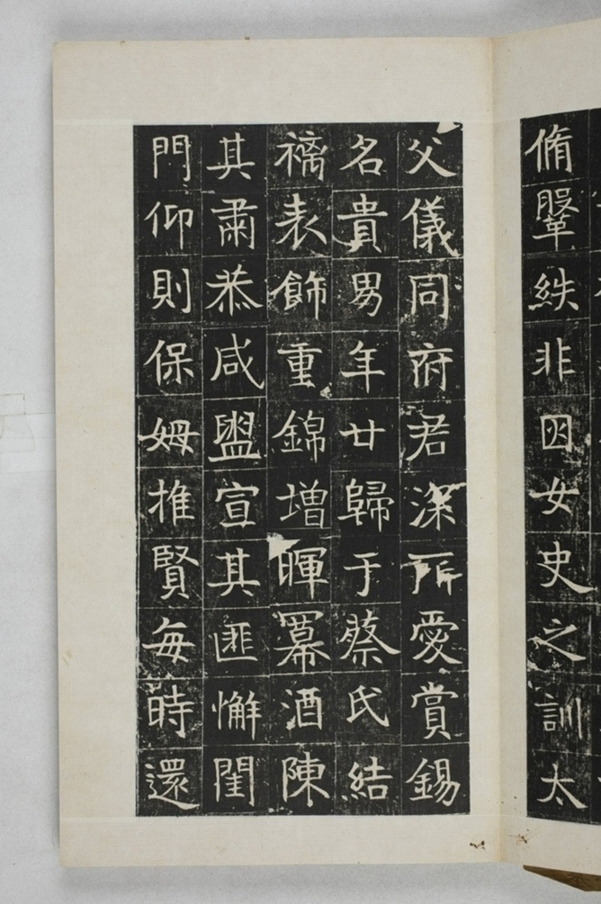 脩鞶紩非因女史之訓太
父儀同府君深所愛賞錫
名貴男年廿歸于蔡氏結
褵表飾重錦增暉冪酒陳
其肅恭咸盥宣其匪懈閨
門仰則保姆推賢每時還